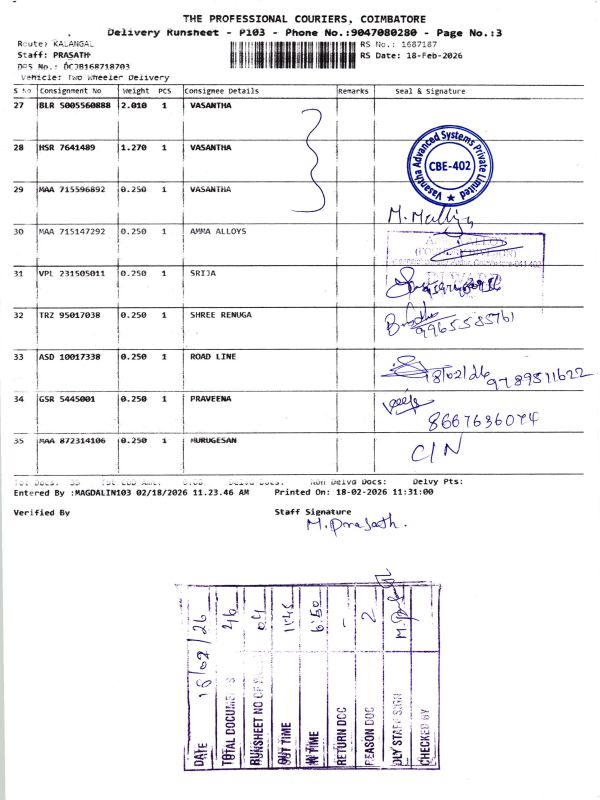 THE PROFESSIONAL COURIERS, COIMBATORE
Delivery Runsheet - P103 - Phone No.:9047080280 - Page No.:3
Route: KALANGAL
RS No.: 1687187
Staff: PRASATH
RS Date: 18-Feb-2026
DRS No.: DCJB168718703
Vehicle: Two Wheeler Delivery
S No Consignment No Weight PCS Consignee Details Remarks Seal & Signature
27 BLR 5005560888 2.010 1 VASANTHA
28 HSR 7641489 1.270 1 VASANTHA
Vasantha Advanced Systems Private Limited
CBE-402
29 MAA 715596892 0.250 1 VASANTHA
30 MAA 715147292 0.250 1 AMMA ALLOYS
31 VPL 231505011 0.250 1 SRIJA
32 TRZ 95017038 0.250 1 SHREE RENUGA
9965585761
33 ASD 10017338 0.250 1 ROAD LINE
18/02/26 9789511622
34 GSR 5445001 0.250 1 PRAVEENA
8667636074
35 MAA 872314106 0.250 1 MURUGESAN
C/N
Tot Docs: 35 Tot COD Amt: 0.00 Delvd Docs: Non Delvd Docs: Delvy Pts:
Entered By :MAGDALIN103 02/18/2026 11.23.46 AM Printed On: 18-02-2026 11:31:00
Verified By Staff Signature
M.Prasath.
DATE 18/02/26
TOTAL DOCUMENTS 46
RUNSHEET NO OF 04
OUT TIME 11:45
IN TIME 6:50
RETURN DOC -
REASON DOC 2
DLY STAFF SIGN
CHECKED BY